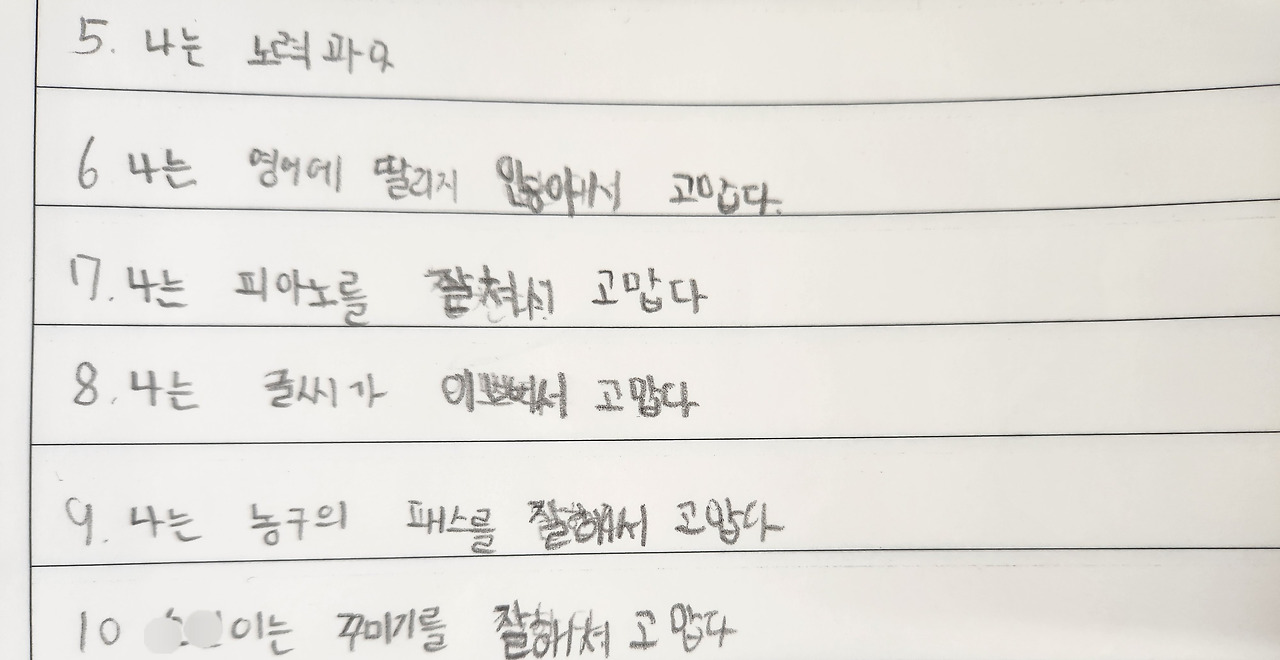 5. 나는 노력파a
6 나는 영어에 딸리지 않아서 고맙다.
7. 나는 피아노를 잘쳐서 고맙다
8. 나는 글씨가 이뻐서 고맙다
9. 나는 농구의 패스를 잘해서 고맙다
10 이는 꾸미기를 잘해쳐 고맙다